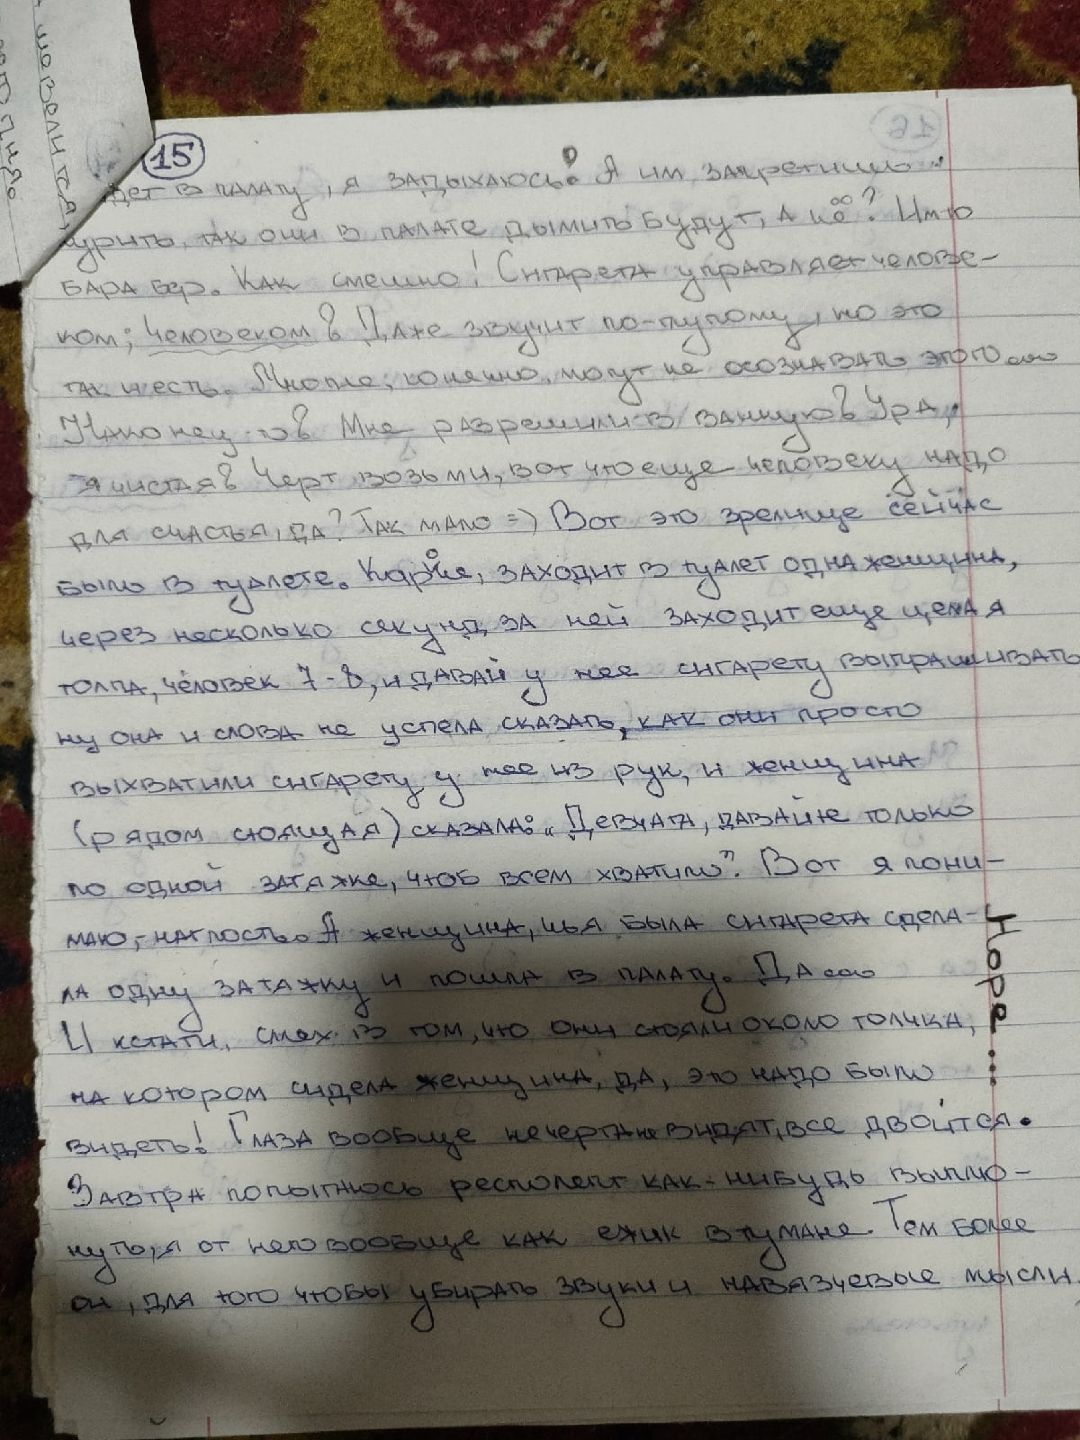 15
дет в палату, я задыхаюсь! А им запретили
курить, так они в палате дымить будут, а чё? Имю
бара бер. Как смешно! Сигарета управляет челове-
ком; человеком! Даже звучит по-тупому, но это
так и есть. Многие, конечно, могут не осознавать этого...
Наконец-то! Мне разрешили в ванную! Ура,
я чистая! Черт возьми, вот что еще человеку надо
для счастья, да? Так мало =) Вот это зрелище сейчас
было в туалете. Короче, заходит в туалет одна женщина,
через несколько секунд за ней заходит еще целая
толпа, человек 7-8, и давай у нее сигарету выпрашивать
ну она и слова не успела сказать, как они просто
выхватили сигарету у нее из рук, и женщина
(рядом стоящая) сказала: "Девчата, давайте только
по одной затяжке, чтоб всем хватило". Вот я пони-
маю,- наглость. А женщина, чья была сигарета сдела-
ла одну затяжку и пошла в палату. Да...
И кстати, смех в том, что они стояли около толчка,
на котором сидела женщина, да, это надо было
видеть! Глаза вообще ни черта не видят, все двоится.
Завтра попытаюсь респолепт как-нибудь выплю-
нуть, я от него вообще как ежик в тумане. Тем более
он, для того чтобы убирать звуки и навязчевые мысли.
Норе...
шевелится,